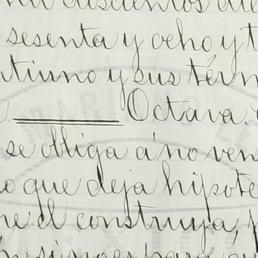 sesenta y ocho y t
tiuno y sus térm
Octava.
se obliga á no ven
o que deja hipote
re el construya, p